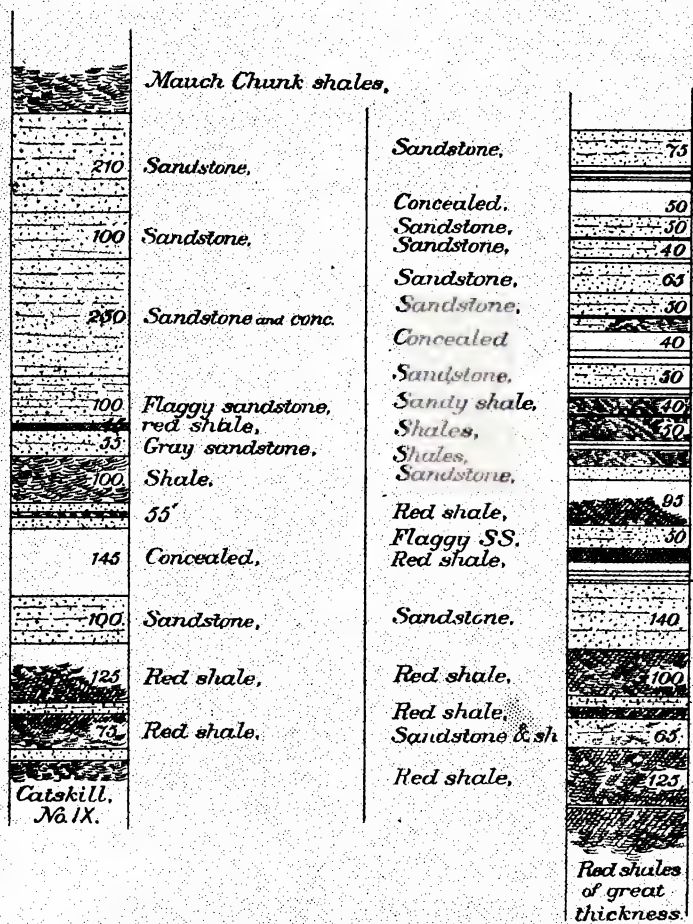 Mauch Chunk shales,
210 Sandstone,
100 Sandstone,
250 Sandstone and conc.
100 Flaggy sandstone,
red shale,
55 Gray sandstone,
100 Shale,
55'
145 Concealed,
100 Sandstone,
125 Red shale,
75 Red shale,
Catskill,
No. IX.
Sandstone, 75
Concealed, 50
Sandstone, 50
Sandstone, 40
Sandstone, 65
Sandstone, 50
Concealed 40
Sandstone, 50
Sandy shale, 40
Shales, 50
Shales,
Sandstone,
Red shale, 95
Flaggy SS. 50
Red shale,
Sandstone. 140
Red shale, 100
Red shale,
Sandstone & sh 65
Red shale, 125
Red shales
of great
thickness